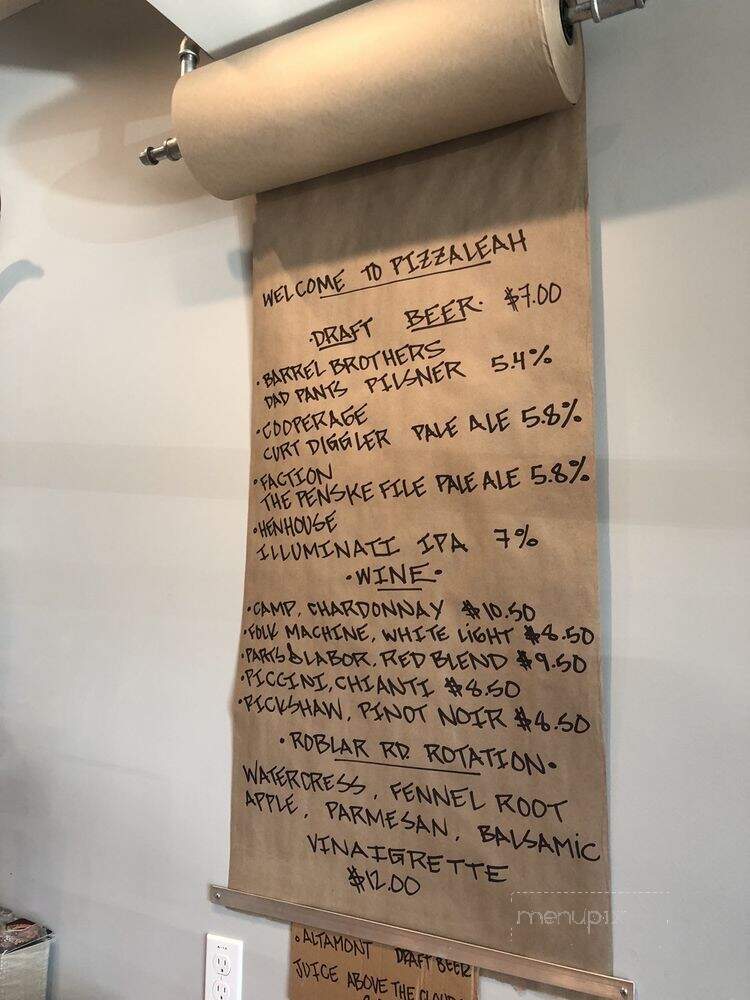 WELCOME TO PIZZALEAH
·DRAFT BEER· $7.00
·BARREL BROTHERS
DAD PANTS PILSNER 5.4%
·COOPERAGE
CURT DIGGLER PALE ALE 5.8%
·FACTION
THE PENSKE FILE PALE ALE 5.8%
·HENHOUSE
ILLUMINATI IPA 7%
·WINE·
·CAMP, CHARDONNAY $10.50
·FOLK MACHINE, WHITE LIGHT $8.50
·PARTS & LABOR, RED BLEND $9.50
·PICCINI, CHIANTI $8.50
·RICKSHAW, PINOT NOIR $8.50
·ROBLAR RD. ROTATION·
WATERCRESS, FENNEL ROOT
APPLE, PARMESAN, BALSAMIC
VINAIGRETTE
$12.00
menupix
·ALTAMONT DRAFT BEER
JUICE ABOVE THE CLOUDS